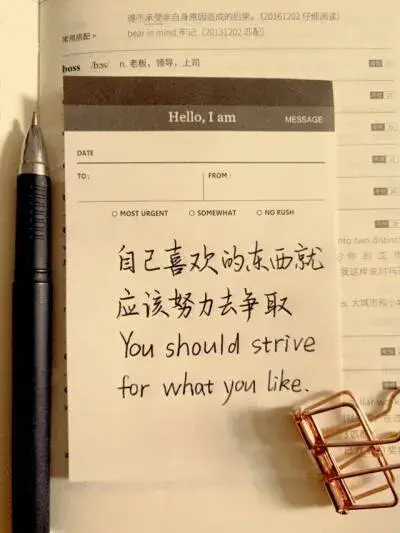 得不承受非自身原因造成的后果。(20161202 仔细阅读)
常用搭配
bear in mind 牢记 (20131202 匹配)
boss /bɔs/ n. 老板，领导，上司
Hello, I am MESSAGE
DATE
TO: FROM:
MOST URGENT SOMEWHAT NO RUSH
自己喜欢的东西就
应该努力去争取
You should strive
for what you like.
into two distinct